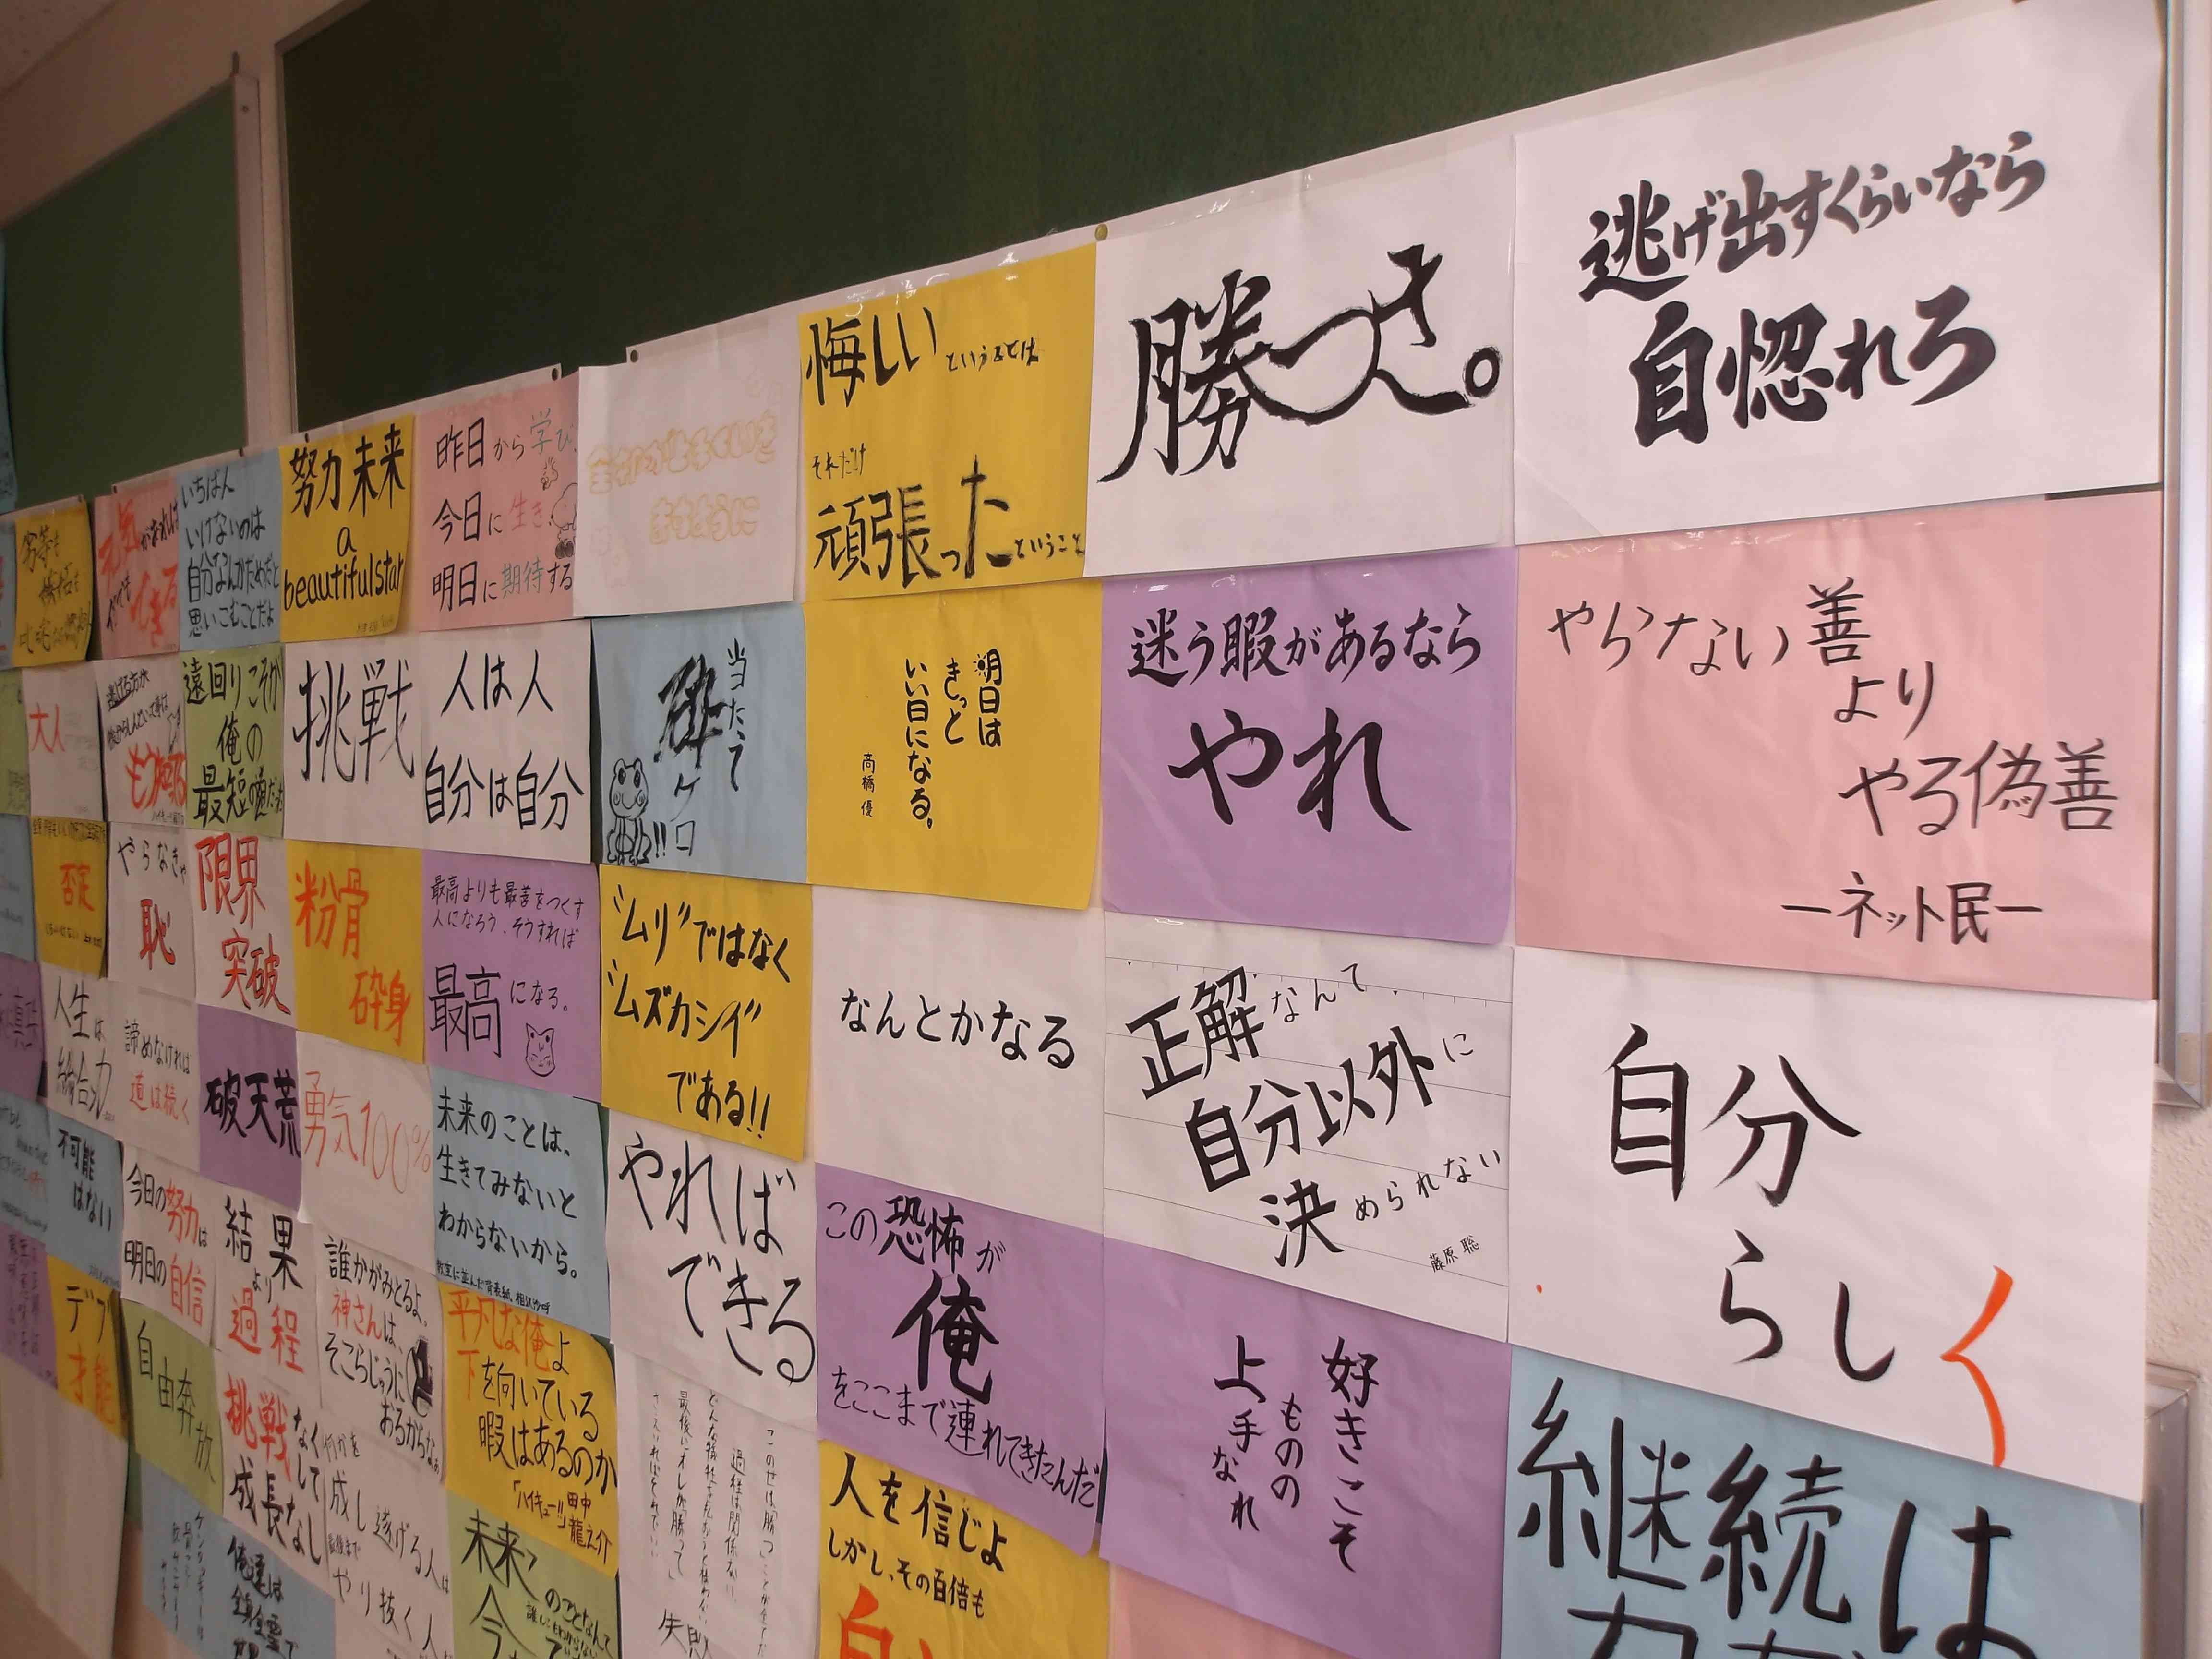 逃げ出すくらいなら
自惚れろ
勝つさ。
悔しいということは
それだけ
頑張ったということ
昨日から学び、
今日に生き、
明日に期待する
努力未来
a
beautiful star
いちばん
いけないのは
自分なんかだめだと
思いこむことだよ
やらない善
より
やる偽善
ーネット民ー
迷う暇があるなら
やれ
明日は
きっと
いい日になる。
高橋優
当たって
砕
ケロ
!!
人は人
自分は自分
挑戦
遠回りこそが
俺の
最短の道だった
大人
自分
らしく
正解なんて
自分以外に
決められない
藤原聡
なんとかなる
"ムリ"ではなく
"ムズカシイ"
である!!
最高よりも最善をつくす
人になろう。そうすれば
最高になる。
粉骨
砕身
限界
突破
やらなきゃ
恥
否定
継続は
好きこそ
ものの
上手なれ
この恐怖が
俺
をここまで連れてきたんだ
やれば
できる
未来のことは、
生きてみないと
わからないから。
教室に並んだ背表紙 相沢沙呼
勇気100%
破天荒
諦めなければ
道は続く
人生は
総合力
人を信じよ
しかし、その百倍も
平凡な俺よ
下を向いている
暇はあるのか
「ハイキュー!!」田中
龍之介
誰かがみとるよ。
神さんは、
そこらじゅうに
おるからなぁ
結果
より
過程
今日の努力は
明日の自信
不可能
はない
未来のことなんて
今
何かを
成し遂げる人は
最後まで
やり抜く人
挑戦なくして
成長なし
自由奔放
デブ
才能
俺達は
全身全霊で